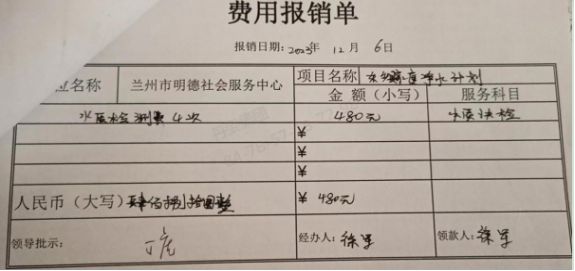 费用报销单
报销日期：2023年 12月 6日
位名称 兰州市明德社会服务中心 项目名称 净水计划
金 额（小写） 服务科目
水质检测费4次 480元 水质快检
¥
¥
¥
人民币（大写）肆佰捌拾圆整 ¥ 480元
领导批示： 经办人：徐军 领款人：徐军